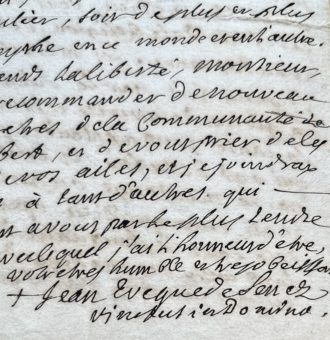 ulier, soit de plus en plus
mphe en ce monde et en l'autre.
ends la liberté, monsieur,
recommander de nouveau
de la Communauté
et de vous prier de les
vos ailes, et je joindray
à tant d'autres qui
a vous par le plus tendre
avec lequel j'ai l'honneur d'être,
votre tres humble et tres obeissan
+ Jean Eveque de Senez
vinctus in Domino.